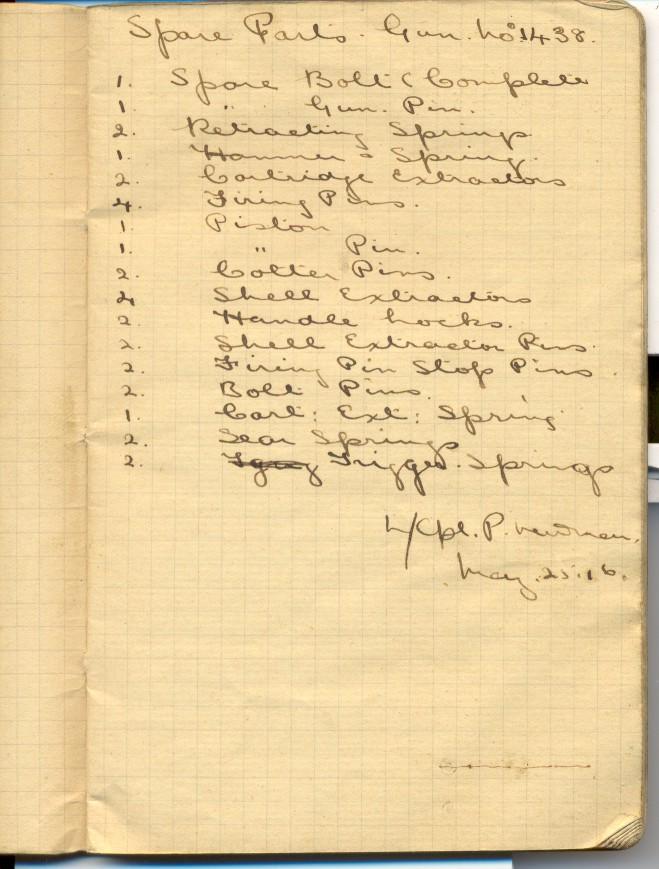 Spare Parts. Gun. No. 1438.
1. Spare Bolt (Complete
1. " Gun. Pin.
2. Retracting Springs
1. Hammer = Spring.
2. Cartridge Extractors
4. Firing Pins.
1. Piston
1. " Pin.
2. Cotter Pins.
4 Shell Extractors
2. Handle Locks.
2. Shell Extractor Pins.
2. Firing Pin Stop Pins.
2. Bolt Pins.
1. Cart: Ext: Spring
2. Sear Springs
2. Trigger. Springs
L/Cpl. P. Newman.
May. 25. 16.